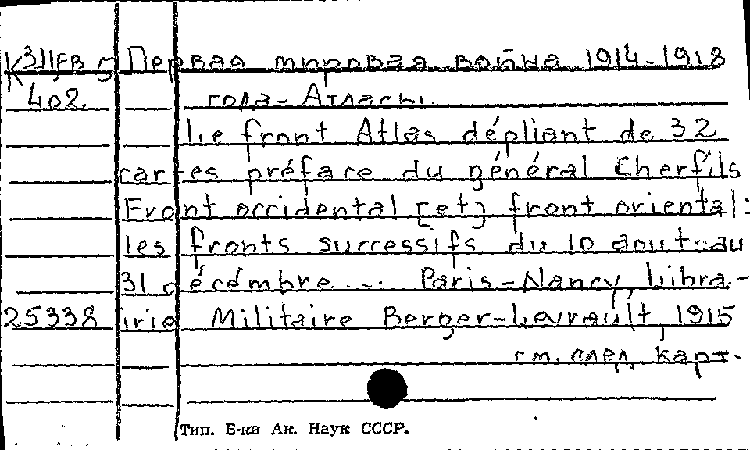 К 311ЕВ 5 Первая мировая война 1914-1918
402 года - Атласы.
Le front Atlas dépliant de 32
cartes préface du général Cherfils
Front occidental [et] front oriental:
les fronts successifs du 10 aout au
31 décémbre ... Paris-Nancy, Libra-
25338 irie Militaire Berger-Levrault, 1915
см. след. карт.
Тип. Б-ки Ак. Наук СССР.